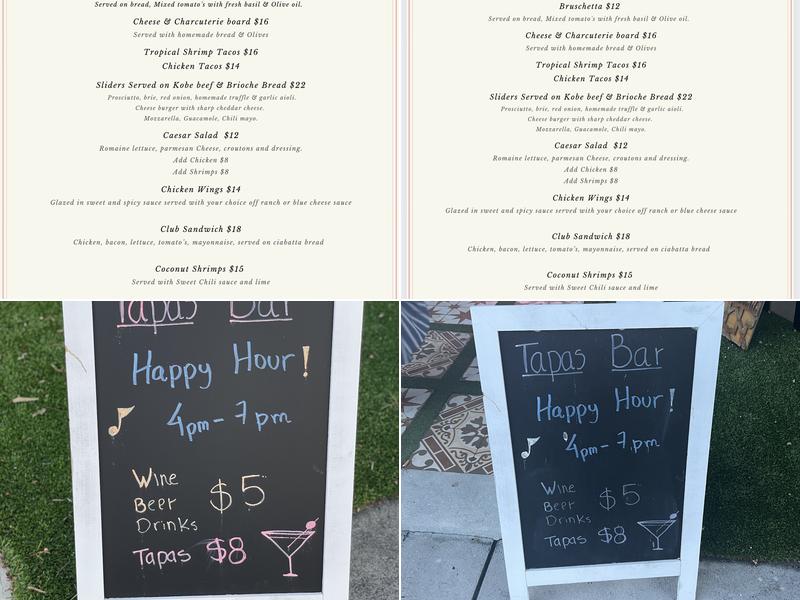 Served on bread, Mixed tomato's with fresh basil & Olive oil.
Cheese & Charcuterie board $16
Served with homemade bread & Olives
Tropical Shrimp Tacos $16
Chicken Tacos $14
Sliders Served on Kobe beef & Brioche Bread $22
Prosciutto, brie, red onion, homemade truffle & garlic aioli.
Cheese burger with sharp cheddar cheese.
Mozzarella, Guacamole, Chili mayo.
Caesar Salad $12
Romaine lettuce, parmesan Cheese, croutons and dressing.
Add Chicken $8
Add Shrimps $8
Chicken Wings $14
Glazed in sweet and spicy sauce served with your choice off ranch or blue cheese sauce
Club Sandwich $18
Chicken, bacon, lettuce, tomato's, mayonnaise, served on ciabatta bread
Coconut Shrimps $15
Served with Sweet Chili sauce and lime
Bruschetta $12
Served on bread, Mixed tomato's with fresh basil & Olive oil.
Cheese & Charcuterie board $16
Served with homemade bread & Olives
Tropical Shrimp Tacos $16
Chicken Tacos $14
Sliders Served on Kobe beef & Brioche Bread $22
Prosciutto, brie, red onion, homemade truffle & garlic aioli.
Cheese burger with sharp cheddar cheese.
Mozzarella, Guacamole, Chili mayo.
Caesar Salad $12
Romaine lettuce, parmesan Cheese, croutons and dressing.
Add Chicken $8
Add Shrimps $8
Chicken Wings $14
Glazed in sweet and spicy sauce served with your choice off ranch or blue cheese sauce
Club Sandwich $18
Chicken, bacon, lettuce, tomato's, mayonnaise, served on ciabatta bread
Coconut Shrimps $15
Served with Sweet Chili sauce and lime
Tapas Bar
Happy Hour!
4pm - 7pm
Wine
Beer $5
Drinks
Tapas $8
Tapas Bar
Happy Hour!
4pm - 7pm
Wine
Beer $5
Drinks
Tapas $8